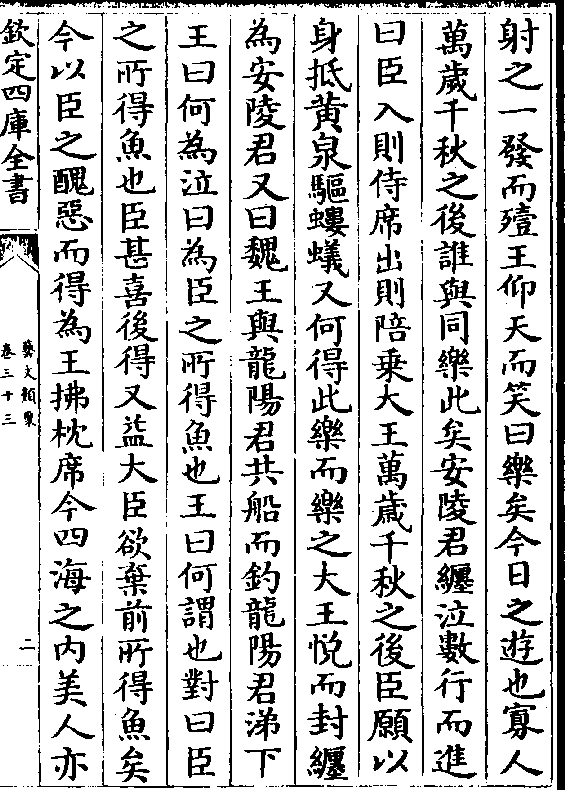 射之一發而殪王仰天而笑曰樂矣今日之遊也寡人
萬歲千秋之後誰與同樂此矣安陵君纒泣數行而進
曰臣入則侍席出則陪乗大王萬歲千秋之後臣願以
身抵黄泉驅螻蟻又何得此樂而樂之大王悅而封纒
為安陵君又曰魏王與龍陽君共船而釣龍陽君涕下
王曰何為泣曰為臣之所得魚也王曰何謂也對曰臣
之所得魚也臣甚喜後得又益大臣欲棄前所得魚矣
今以臣之醜惡而得為王拂枕席今四海之内美人亦
欽定四庫全書
藝文類聚
卷三十三
二